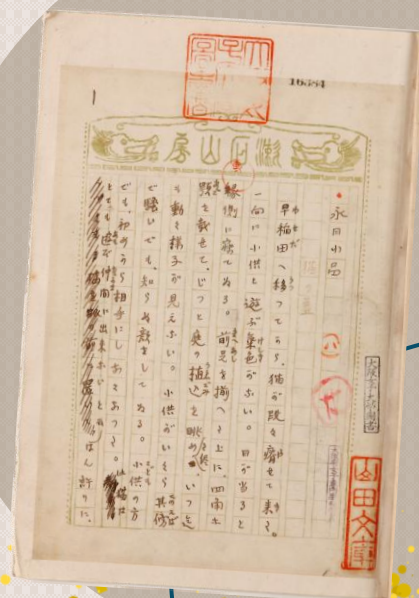 漱石山房
永日小品
猫の墓
早稲田へ移つてから、猫が段々瘠せて来た。
一向に小供と遊ぶ気色がない。日が当ると
縁側に寝てゐる。前足を揃へた上に、四角な
顎を載せて、じつと庭の植込を眺めた儘、いつ迄
も動く様子が見えない。小供がいくら其傍
で騒いでも、知らぬ顔をしてゐる。小供の方
でも、初めから相手にしなくなつた。此猫は
とても遊び仲間に出来ないと云はん許りに、
山田文庫